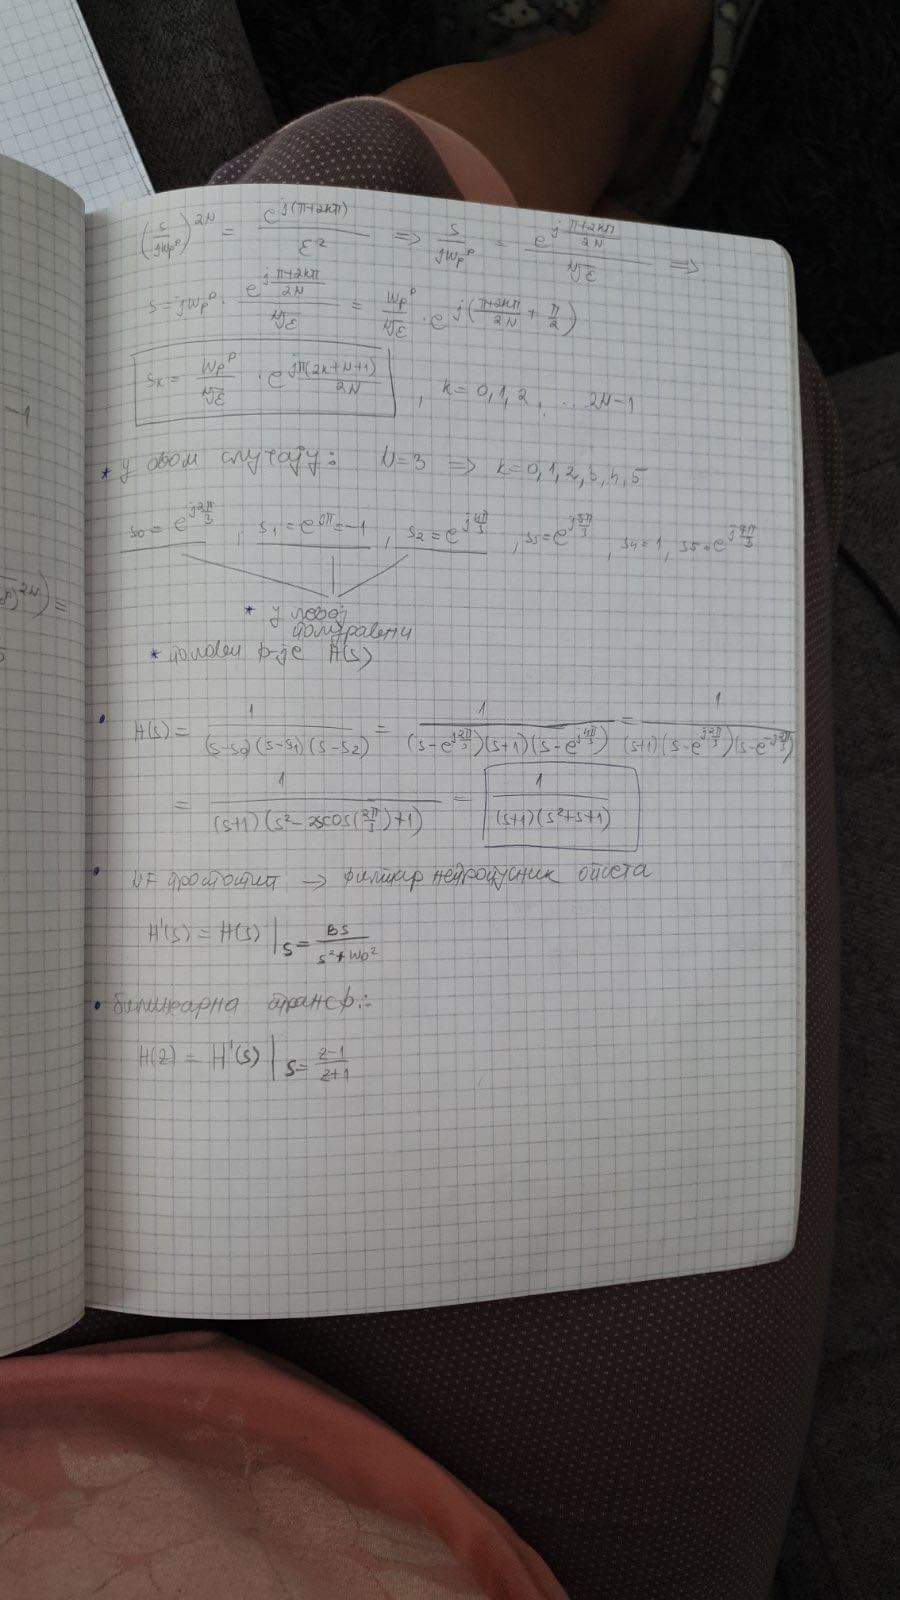 (s/jωp^p)^2N = e^j(π+2kπ)/ε² => s/jωp^p = e^j(π+2kπ)/2N / ᴺ√ε =>
s = jωp^p · e^j(π+2kπ)/2N / ᴺ√ε = ωp^p/ᴺ√ε · e^j((π+2kπ)/2N + π/2)
sk = ωp^p/ᴺ√ε · e^jπ(2k+N+1)/2N , k=0,1,2, ... 2N-1
* у овом случају: N=3 => k=0,1,2,3,4,5
s0 = e^j2π/3 , s1 = e^jπ = -1 , s2 = e^j4π/3 , s3 = e^j5π/3 , s4 = 1 , s5 = e^j7π/3
* у левој
полуравни
* полови ф-је H(s)
• H(s) = 1/((s-s0)(s-s1)(s-s2)) = 1/((s-e^j2π/3)(s+1)(s-e^j4π/3)) = 1/((s+1)(s-e^j2π/3)(s-e^-j2π/3))
= 1/((s+1)(s²-2scos(2π/3)+1)) = 1/((s+1)(s²+s+1))
• NF прототип → филтар непропусник опсега
H'(s) = H(s) | s = Bs/(s²+ω0²)
• Билинеарна трансф.:
H(z) = H'(s) | s = z-1/z+1
-1
)^2N) =